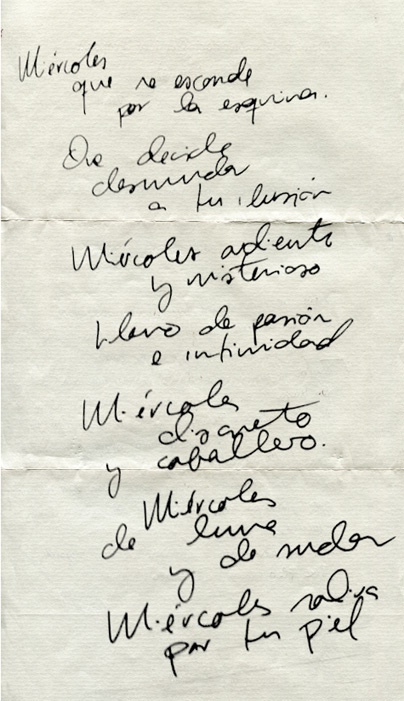 Miércoles
que se esconde
por la esquina.
Que decide
desnudar
a tu ilusión
Miércoles ardiente
y misterioso
lleno de pasión
e intimidad
Miércoles
discreto
y caballero.
Miércoles
de luna
y de sudor
Miércoles saliva
por tu piel